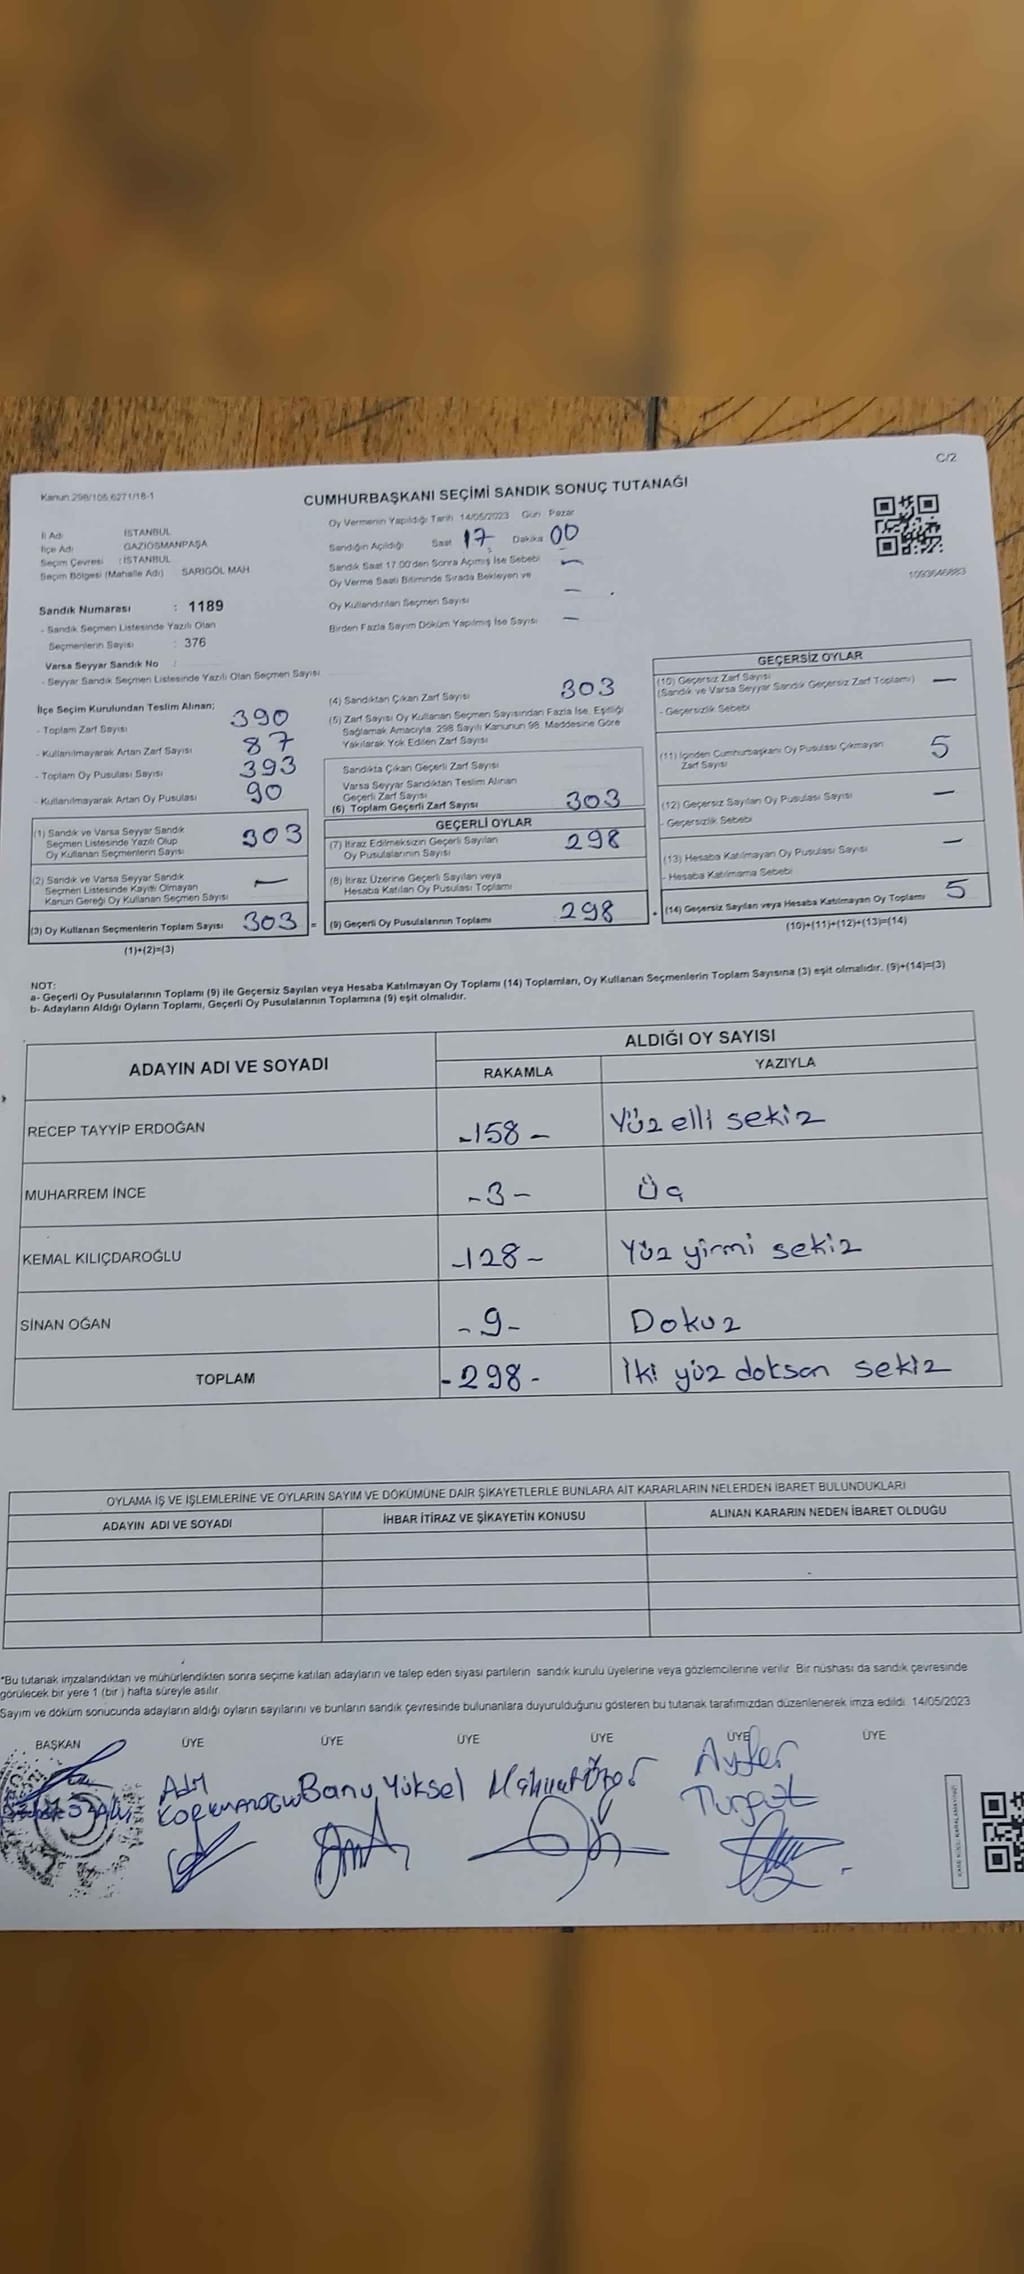 C/2
Kanun:298/105,6271/18-1
CUMHURBAŞKANI SEÇİMİ SANDIK SONUÇ TUTANAĞI
İl Adı İSTANBUL
İlçe Adı GAZİOSMANPAŞA
Seçim Çevresi : İSTANBUL
Seçim Bölgesi (Mahalle Adı) SARIGÖL MAH
Oy Vermenin Yapıldığı Tarih 14/05/2023 Gün Pazar
Sandığın Açıldığı Saat 17 Dakika 00
Sandık Saat 17.00'den Sonra Açmış İse Sebebi –
Oy Verme Saati Bitiminde Sırada Bekleyen ve
Oy Kullandırılan Seçmen Sayısı –
Birden Fazla Sayım Döküm Yapılmış İse Sayısı –
1093646883
Sandık Numarası : 1189
- Sandık Seçmen Listesinde Yazılı Olan
Seçmenlerin Sayısı : 376
Varsa Seyyar Sandık No :
- Seyyar Sandık Seçmen Listesinde Yazılı Olan Seçmen Sayısı
İlçe Seçim Kurulundan Teslim Alınan;
- Toplam Zarf Sayısı 390
- Kullanılmayarak Artan Zarf Sayısı 87
- Toplam Oy Pusulası Sayısı 393
- Kullanılmayarak Artan Oy Pusulası 90
(1) Sandık ve Varsa Seyyar Sandık
Seçmen Listesinde Yazılı Olup
Oy Kullanan Seçmenlerin Sayısı 303
(2) Sandık ve Varsa Seyyar Sandık
Seçmen Listesinde Kayıtlı Olmayan
Kanun Gereği Oy Kullanan Seçmen Sayısı –
(3) Oy Kullanan Seçmenlerin Toplam Sayısı 303 =
(1)+(2)=(3)
(4) Sandıktan Çıkan Zarf Sayısı 303
(5) Zarf Sayısı Oy Kullanan Seçmen Sayısından Fazla İse, Eşitliği
Sağlamak Amacıyla, 298 Sayılı Kanunun 98. Maddesine Göre
Yakılarak Yok Edilen Zarf Sayısı
Sandıkta Çıkan Geçerli Zarf Sayısı
Varsa Seyyar Sandıktan Teslim Alınan
Geçerli Zarf Sayısı
(6) Toplam Geçerli Zarf Sayısı 303
GEÇERLİ OYLAR
(7) İtiraz Edilmeksizin Geçerli Sayılan
Oy Pusulalarının Sayısı 298
(8) İtiraz Üzerine Geçerli Sayılan veya
Hesaba Katılan Oy Pusulası Toplamı
(9) Geçerli Oy Pusulalarının Toplamı 298
GEÇERSİZ OYLAR
(10) Geçersiz Zarf Sayısı
(Sandık ve Varsa Seyyar Sandık Geçersiz Zarf Toplamı) –
- Geçersizlik Sebebi
(11) İçinden Cumhurbaşkanı Oy Pusulası Çıkmayan
Zarf Sayısı 5
(12) Geçersiz Sayılan Oy Pusulası Sayısı –
- Geçersizlik Sebebi
(13) Hesaba Katılmayan Oy Pusulası Sayısı –
- Hesaba Katılmama Sebebi
(14) Geçersiz Sayılan veya Hesaba Katılmayan Oy Toplamı 5
(10)+(11)+(12)+(13)=(14)
NOT:
a- Geçerli Oy Pusulalarının Toplamı (9) ile Geçersiz Sayılan veya Hesaba Katılmayan Oy Toplamı (14) Toplamları, Oy Kullanan Seçmenlerin Toplam Sayısına (3) eşit olmalıdır. (9)+(14)=(3)
b- Adayların Aldığı Oyların Toplamı, Geçerli Oy Pusulalarının Toplamına (9) eşit olmalıdır.
ADAYIN ADI VE SOYADI
ALDIĞI OY SAYISI
RAKAMLA YAZIYLA
RECEP TAYYİP ERDOĞAN -158- Yüz elli sekiz
MUHARREM İNCE -3- Üç
KEMAL KILIÇDAROĞLU -128- Yüz yirmi sekiz
SİNAN OĞAN -9- Dokuz
TOPLAM -298- İki yüz doksan sekiz
OYLAMA İŞ VE İŞLEMLERİNE VE OYLARIN SAYIM VE DÖKÜMÜNE DAİR ŞİKAYETLERLE BUNLARA AİT KARARLARIN NELERDEN İBARET BULUNDUKLARI
ADAYIN ADI VE SOYADI İHBAR İTİRAZ VE ŞİKAYETİN KONUSU ALINAN KARARIN NEDEN İBARET OLDUĞU
*Bu tutanak imzalandıktan ve mühürlendikten sonra seçime katılan adayların ve talep eden siyasi partilerin sandık kurulu üyelerine veya gözlemcilerine verilir. Bir nüshası da sandık çevresinde
görülecek bir yere 1 (bir) hafta süreyle asılır.
Sayım ve döküm sonucunda adayların aldığı oyların sayılarını ve bunların sandık çevresinde bulunanlara duyurulduğunu gösteren bu tutanak tarafımızdan düzenlenerek imza edildi. 14/05/2023
BAŞKAN ÜYE ÜYE ÜYE ÜYE ÜYE ÜYE
Banu Yüksel
Turgut